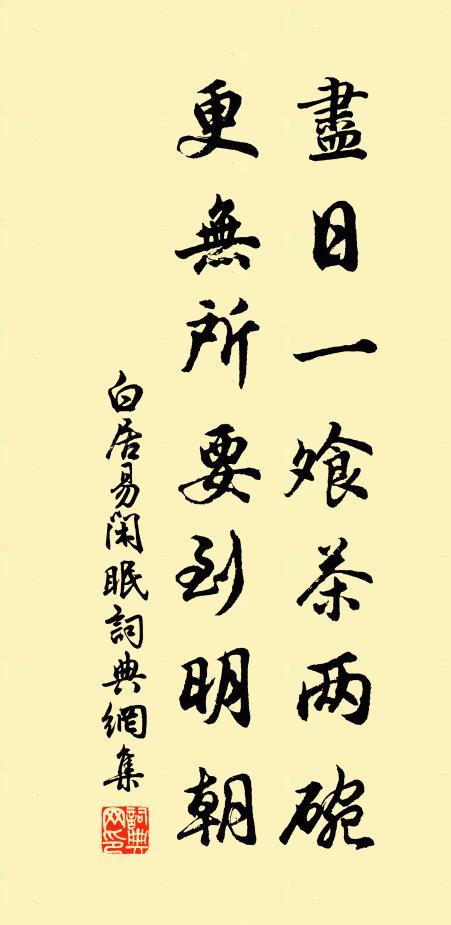 盡日一飧茶两碗
更無所要到明朝
白居易閑眠詞典網集
詞典
网印